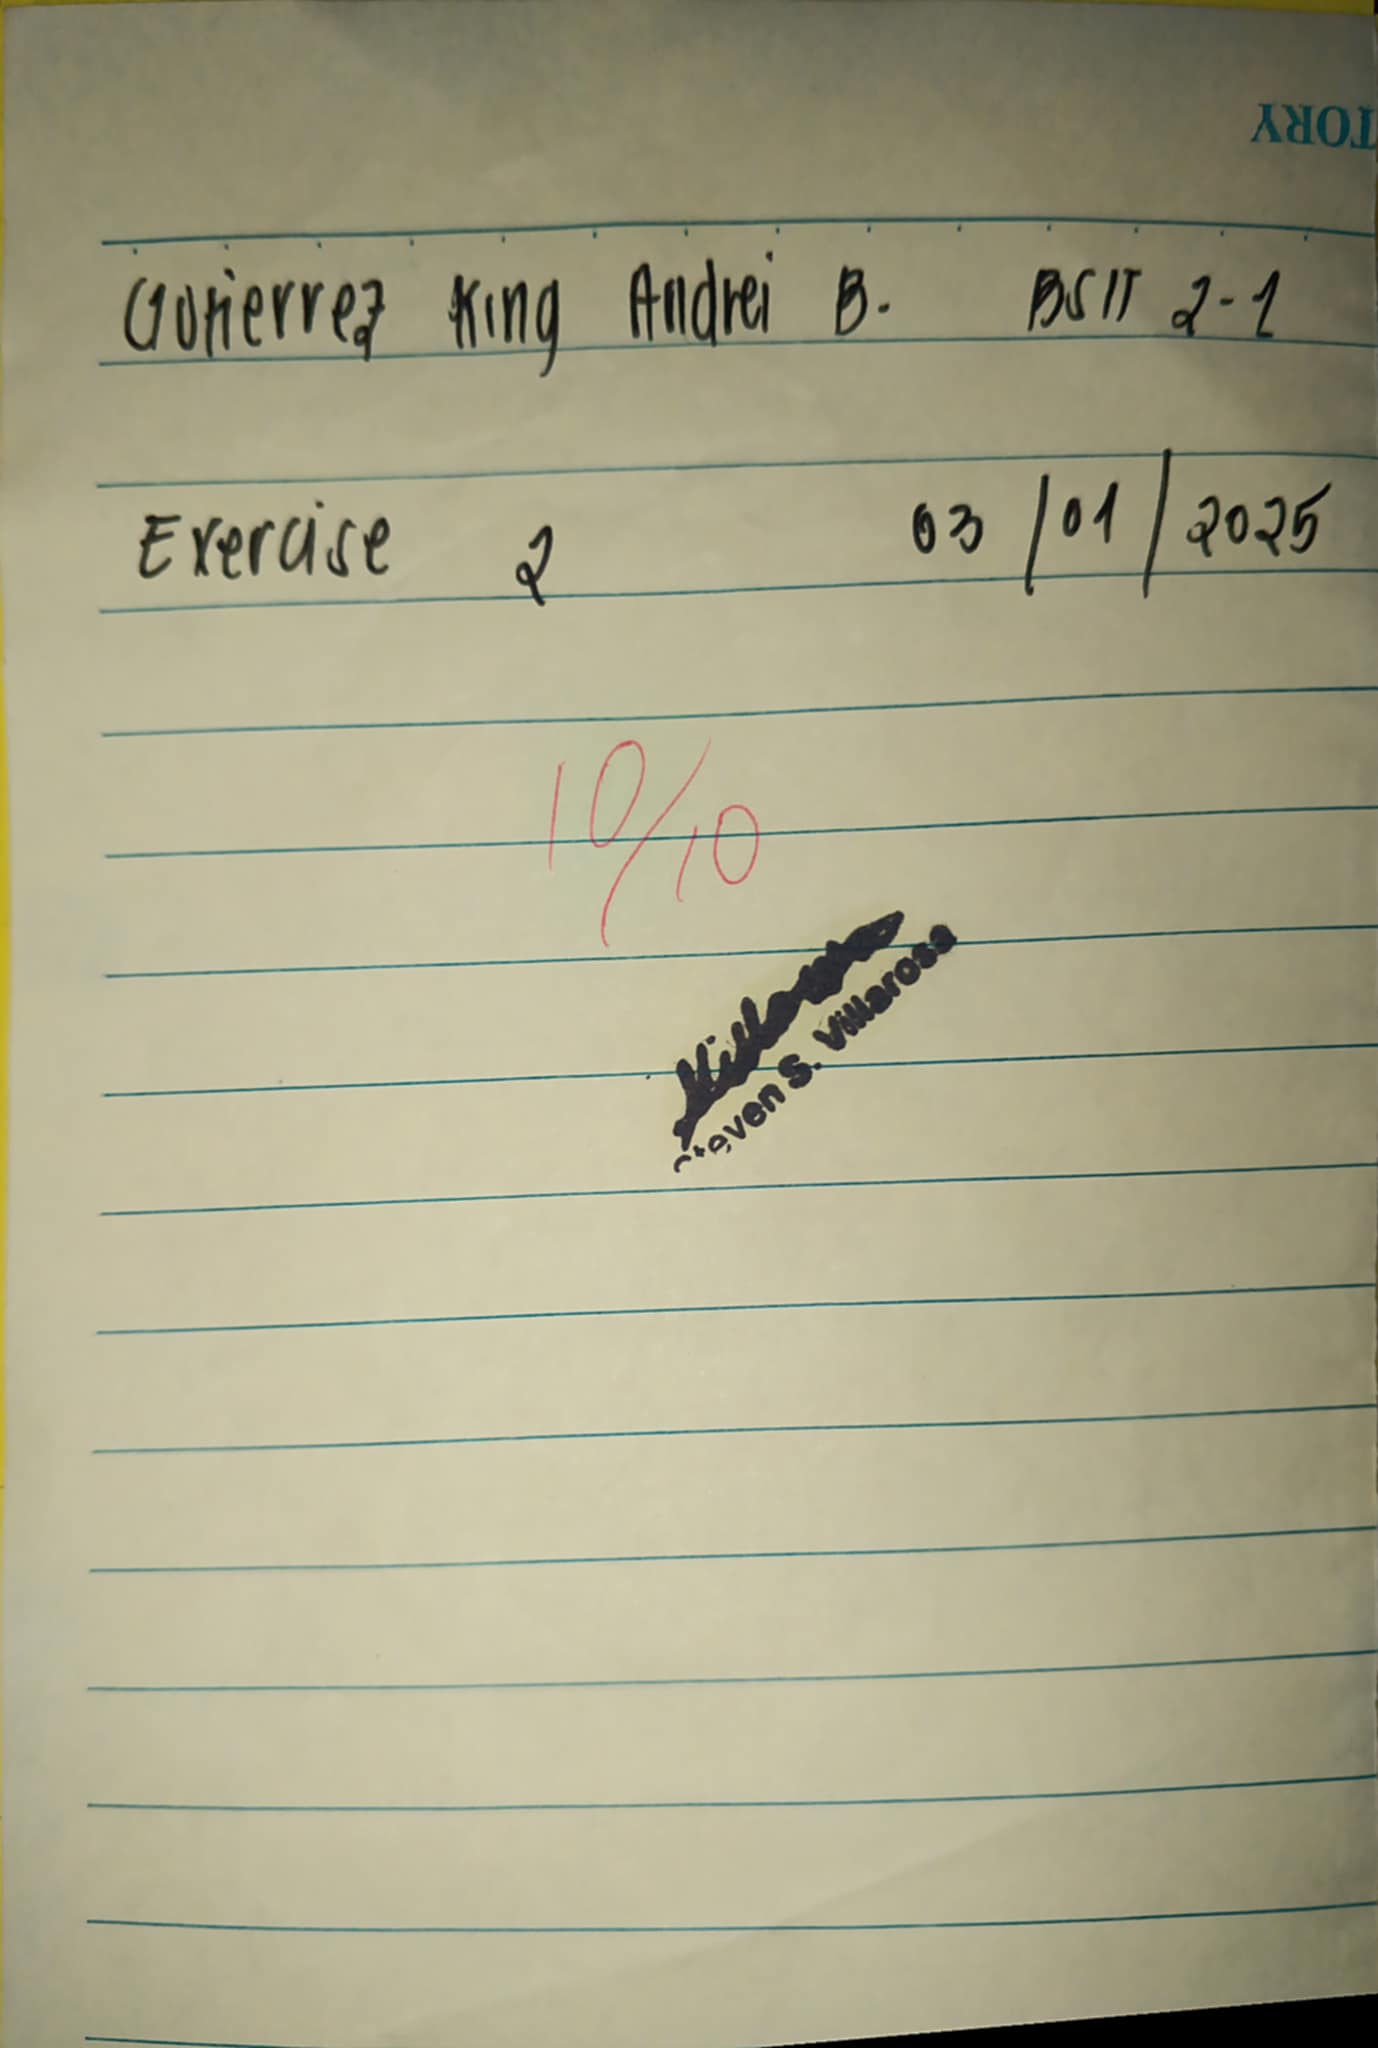 TORY
Gutierrez King Andrei B. BSIT 2-1
Exercise 2 03/01/2025
10/10
Steven S. Villarosa